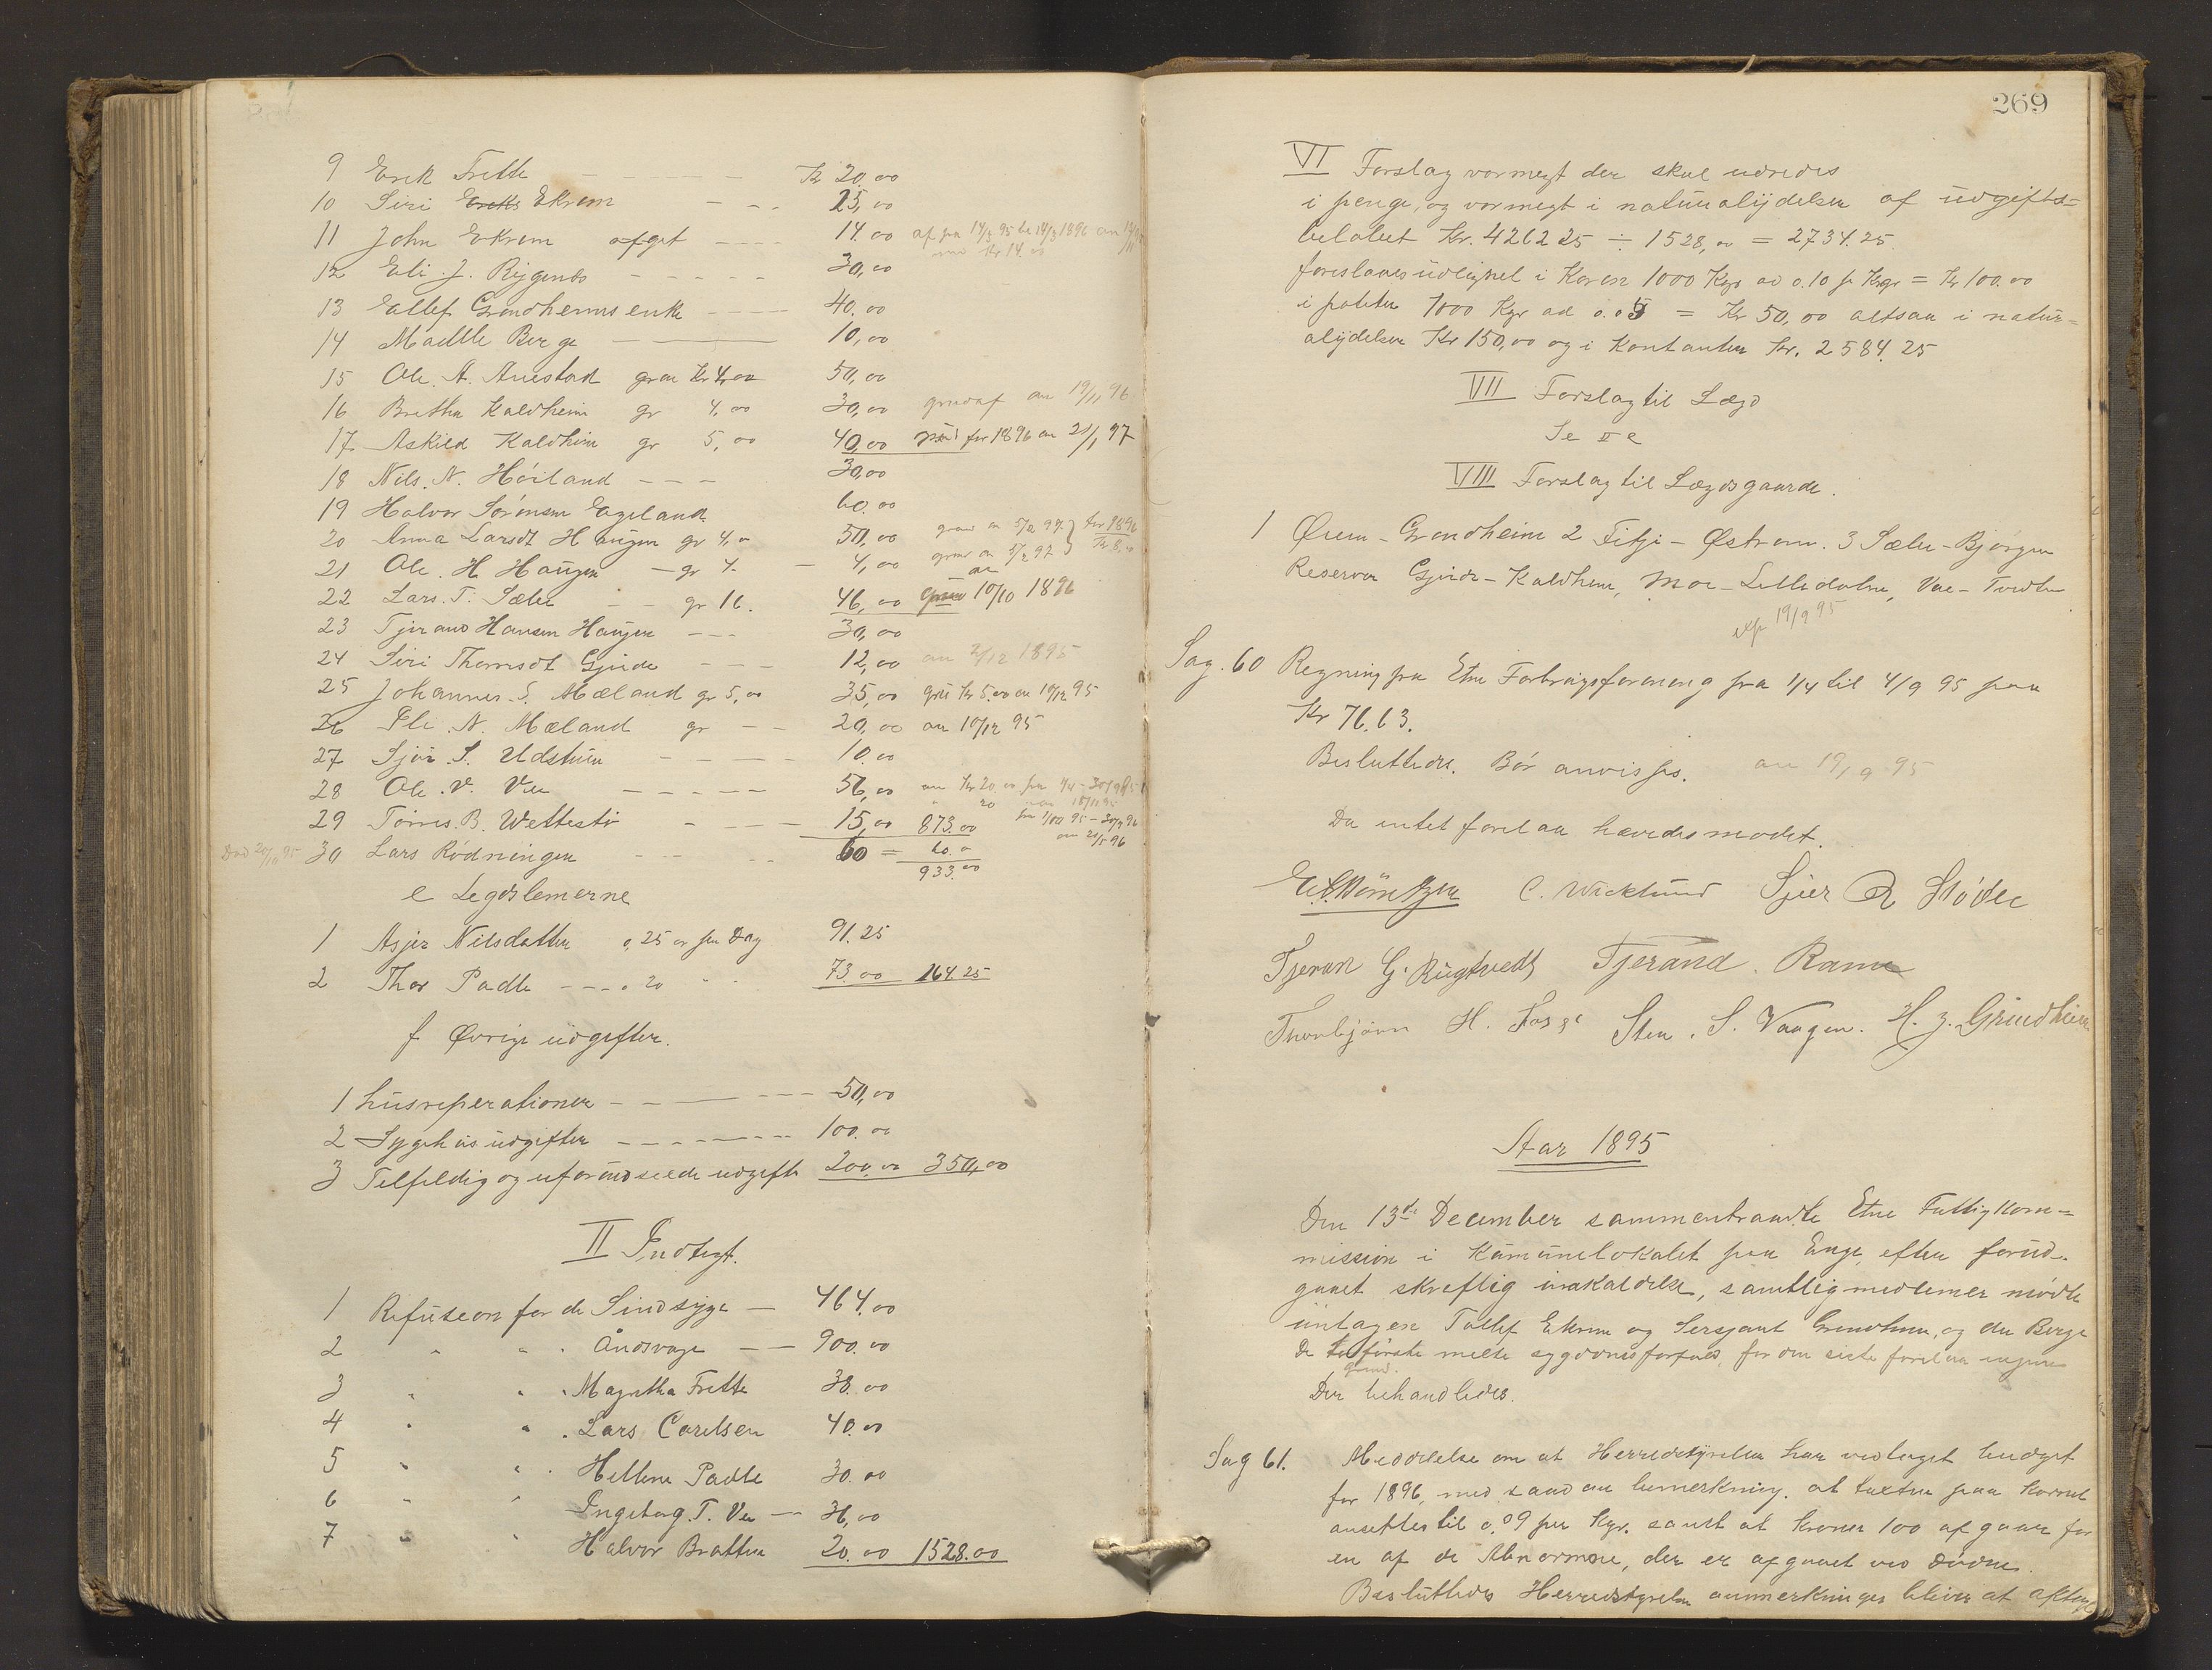 9 Erik Frette - - - - - Kr 20,00
10 Siri Eriks Ekrem - - - 25,00
11 John Ekrem afget - - - - 14.00 af fra 14/3 95 te 14/3 1896
12 Eli. J. Rygends - - - - - 30,00
13 Ellef Grindheims enke - - - - 40.00
14 Madlle Berge 10,00
15 Ole. A. Auestad Kr 4,00 50,00
16 Britha Kaldheim gr 4,00 30,00 an 19/11 96
17 Askild Kaldheim gr 5,00 40,00 for 1896 an 21/1 97
18 Nils. N. Høiland - - - 30,00
19 Halvor Sørensen Egeland 60.00
20 Anna Larsdt Haugen gr 4,00 50,00
21 Ole. H Haugen - gr 4. - 4,00
22 Lars. T. Sæbø - - gr 16. 46,00 an 10/10 1896
23 Tjerand Hansen Haugen - - - 30,00
24 Siri Thomsdt Gjerde - - - 12,00 an 2/12 1895
25 Johannes. S. Mæland gr 5,00 35,00 Kr 5.00 an 10/12 95
26 Eli. N. Mæland gr - - 20,00 an 10/12 95
27 Sjur. S. Udstuen - - - - 10.00
28 Ole. V. Vee - - - - - 56,00 an Kr 20.00 fra
29 Tørres. B. Wettestø - - - - 15,00 873.00
30 Lars Rødningen - - - - 60 = 60.0
Død 20/10 95
933.00
e Legdslemerne
1 Asjer Nilsdatter 0,25 ør per Dag 91.25
2 Thor Padle - - - " 20 " " 73.00 164.25
f Øvrige udgifter.
1 husreperationer - - - - - 50,00
2 Sygehusudgifter - - - - - 100.00
3 Tilfeldig og uforudseede udgifte 200.00 350,00
II Indtegt.
1 Refusion for de Sindsyge - 464.00
2 " " " Åndsvage - - 900.00
3 " " " Magretha Frette 38.00
4 " " " Lars Carelsen 40.00
5 " " " Hellene Padle 30.00
6 " " Ingeborg. T. Vee - 36,00
7 " " Halvor Bratten 20.00 1528.00
269
VI Forslag vormegt der skal udredes
i penge, og vormegt i naturalydelser af udgifts=
beløbet Kr. 4262 25 ÷ 1528,00 = 2734.25
foreslaaes udlignet i Koren 1000 Kgr ad 0.10 pr Kgr = Kr 100.00
i poteter 1000 Kgr ad 0.05 = Kr 50,00 altsaa i natur=
alydelser Kr 150,00 og i Kontanter Kr. 2584.25
VII Forslag til Lægd
Se II e
VIII Forslag til Lægdsgaarde.
1 Øren - Grindheim 2 Fitje - Østrem. 3 Sæbø - Bjørgen
Reserver Gjerde - Kaldheim, Moe - Litledalen, Vae - Tvedten
exp 19/9 95
Sag. 60 Regning fra Etne Forbrugsforening fra 1/4 til 4/9 95 paa
Kr 76.63.
Besluttedes. Bør anvisses. an 19/9 95
Da intet forelaa hævedes mødet.
C. Wicklund Sjur R Støle
Tjeran G. Rügtvedt Tjerand. Rame
Thorbjørn H. Fosse Sten. S. Vaagen. H. J. Grindheim
Aar 1895
Den 13de December sammentraadte Etne Fattigkom=
mission i Kumunelokalet paa Enge, efter forud-
gaaet skreftlig inkaldelse, samtlig medlemer mødte
untagen Tollef Ekrem og Sersjant Grindheim, og den Berge
De to første melte sygdomsforfald for den siste forelaa ingen
grund.
Der behandledes.
Sag 61. Meddelelse om at Herredstyrelsen har vedtaget budget
for 1896, med saadan bemerkning. at taxten paa Kornet
ansettes til 0.09 per Kgr. samt at kroner 100 afgaar for
en af de Abnormere, der er afgaaet ved døden.
Besluttedes Herredstyrelsen anmerkninger bliver at